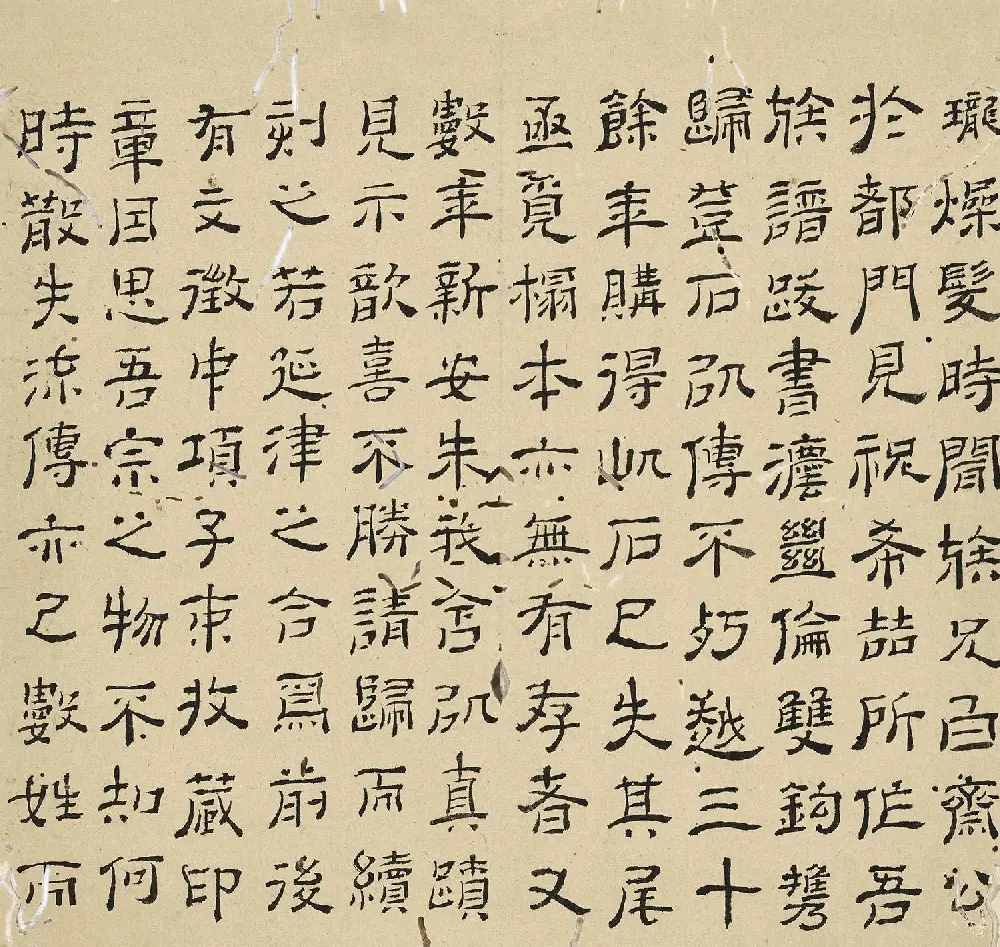 瓏燥髮時聞族兄白齋公
於都門見祝希喆所作吾
族譜跋書灋絕倫雙鉤攜
歸登石以傳不朽越三十
餘年購得此石已失其尾
亟覓榻本亦無有存者又
數年新安朱我含以真蹟
見示歆喜不勝請歸而續
刻之若延津之合焉前後
有文徵中項子京收藏印
章因思吾宗之物不知何
時散失流傳亦已數姓而